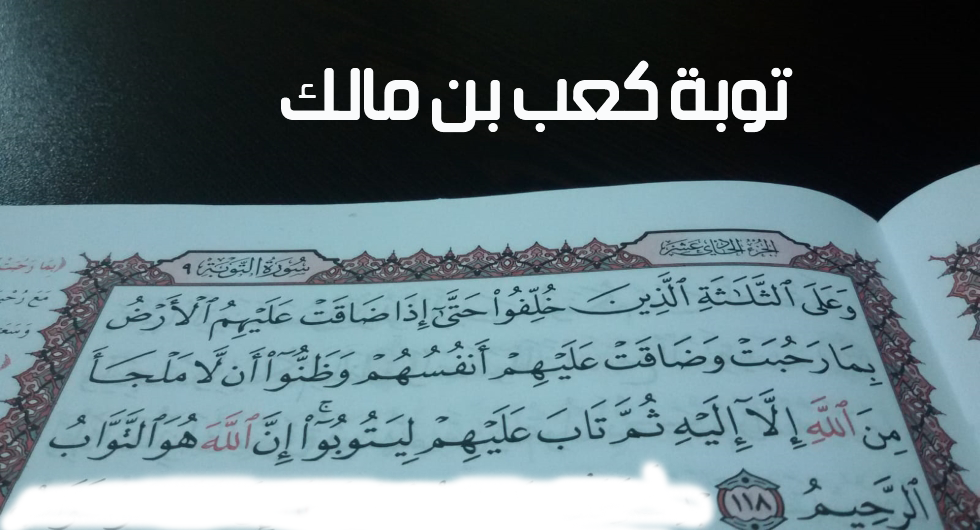 توبة كعب بن مالك
الجزء الحادي عشر
سورة التوبة ٩
وَعَلَى ٱلثَّلَـٰثَةِ ٱلَّذِينَ خُلِّفُوا۟ حَتَّىٰٓ إِذَا ضَاقَتْ عَلَيْهِمُ ٱلْأَرْضُ
بِمَا رَحُبَتْ وَضَاقَتْ عَلَيْهِمْ أَنفُسُهُمْ وَظَنُّوٓا۟ أَن لَّا مَلْجَأَ
مِنَ ٱللَّهِ إِلَّآ إِلَيْهِ ثُمَّ تَابَ عَلَيْهِمْ لِيَتُوبُوٓا۟ ۚ إِنَّ ٱللَّهَ هُوَ ٱلتَّوَّابُ
ٱلرَّحِيمُ ١١٨
﴿بِمَا رَحُبَتْ